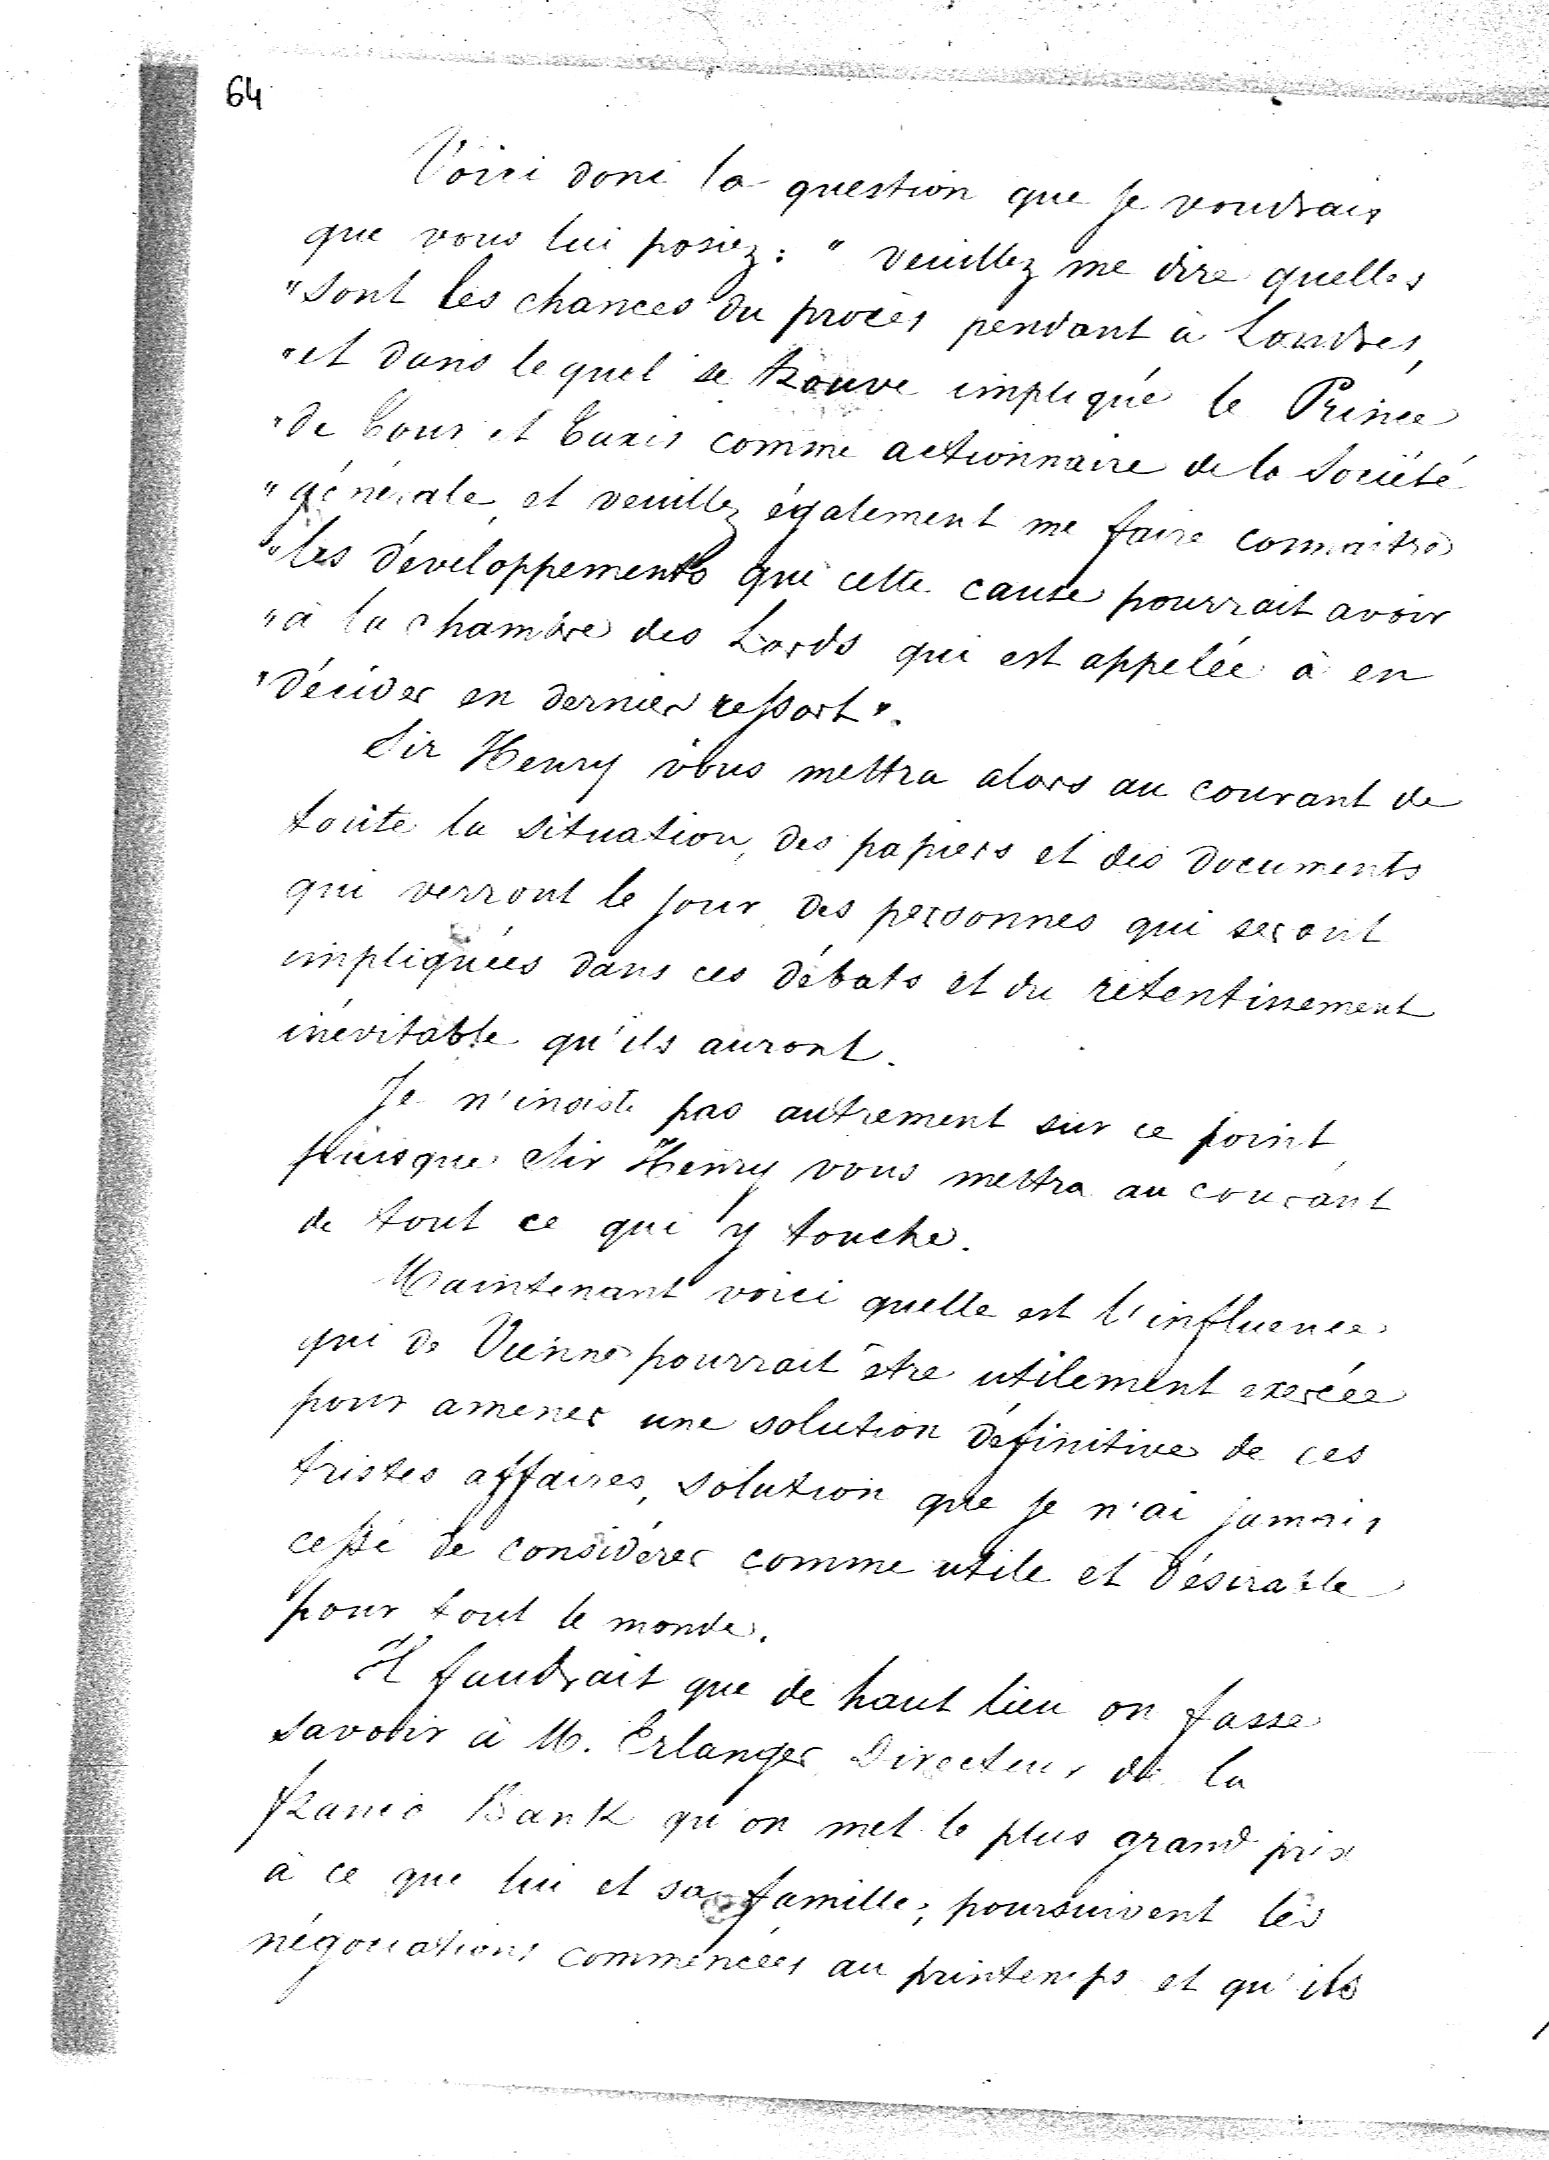 64
Voici donc la question que je voudrais
que vous lui posiez : " veuillez me dire quelles
" sont les chances du procès pendant à Londres,
" et dans lequel se trouve impliqué le Prince
" de Tour et Taxis comme actionnaire de la Société
" générale, et veuillez également me faire connaitre
" les développements que cette cause pourrait avoir
" à la chambre des Lords qui est appelée à en
" décider en dernier ressort ".
Sir Henry vous mettra alors au courant de
toute la situation, des papiers et des documents
qui verront le jour, des personnes qui seront
impliquées dans ces débats et du retentissement
inévitable qu'ils auront.
Je n'insiste pas autrement sur ce point,
puisque Sir Henry vous mettra au courant
de tout ce qui y touche.
Maintenant voici quelle est l'influence
qui de Vienne pourrait être utilement exercée
pour amener une solution définitive de ces
tristes affaires, solution que je n'ai jamais
cessé de considérer comme utile et désirable
pour tout le monde.
Il faudrait que de haut lieu on fasse
savoir à M. Erlanger Directeur de la
franco Bank qu'on met le plus grand prix
à ce que lui et sa famille, poursuivent les
négociations commencées au printemps et qu'ils